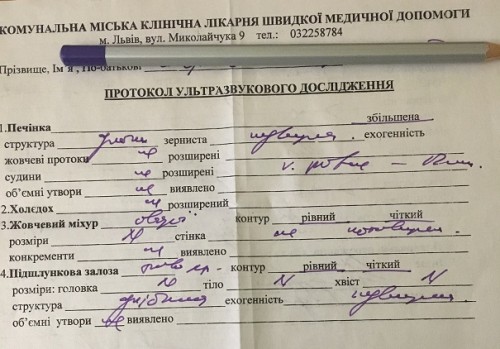 КОМУНАЛЬНА МІСЬКА КЛІНІЧНА ЛІКАРНЯ ШВИДКОЇ МЕДИЧНОЇ ДОПОМОГИ
м. Львів, вул. Миколайчука 9 тел.: 032258784
Прізвище, Ім'я, По-батькові
ПРОТОКОЛ УЛЬТРАЗВУКОВОГО ДОСЛІДЖЕННЯ
1.Печінка збільшена
структура зерниста підвищена. ехогенність
жовчеві протоки не розширені
судини не розширені
об'ємні утвори не виявлено
2.Холедох не розширений
3.Жовчевий міхур контур рівний чіткий
розміри N стінка не потовщена
конкременти не виявлено
4.Підшлункова залоза контур рівний чіткий
розміри: головка N тіло N хвіст N
структура ехогенність підвищена
об'ємні утвори не виявлено